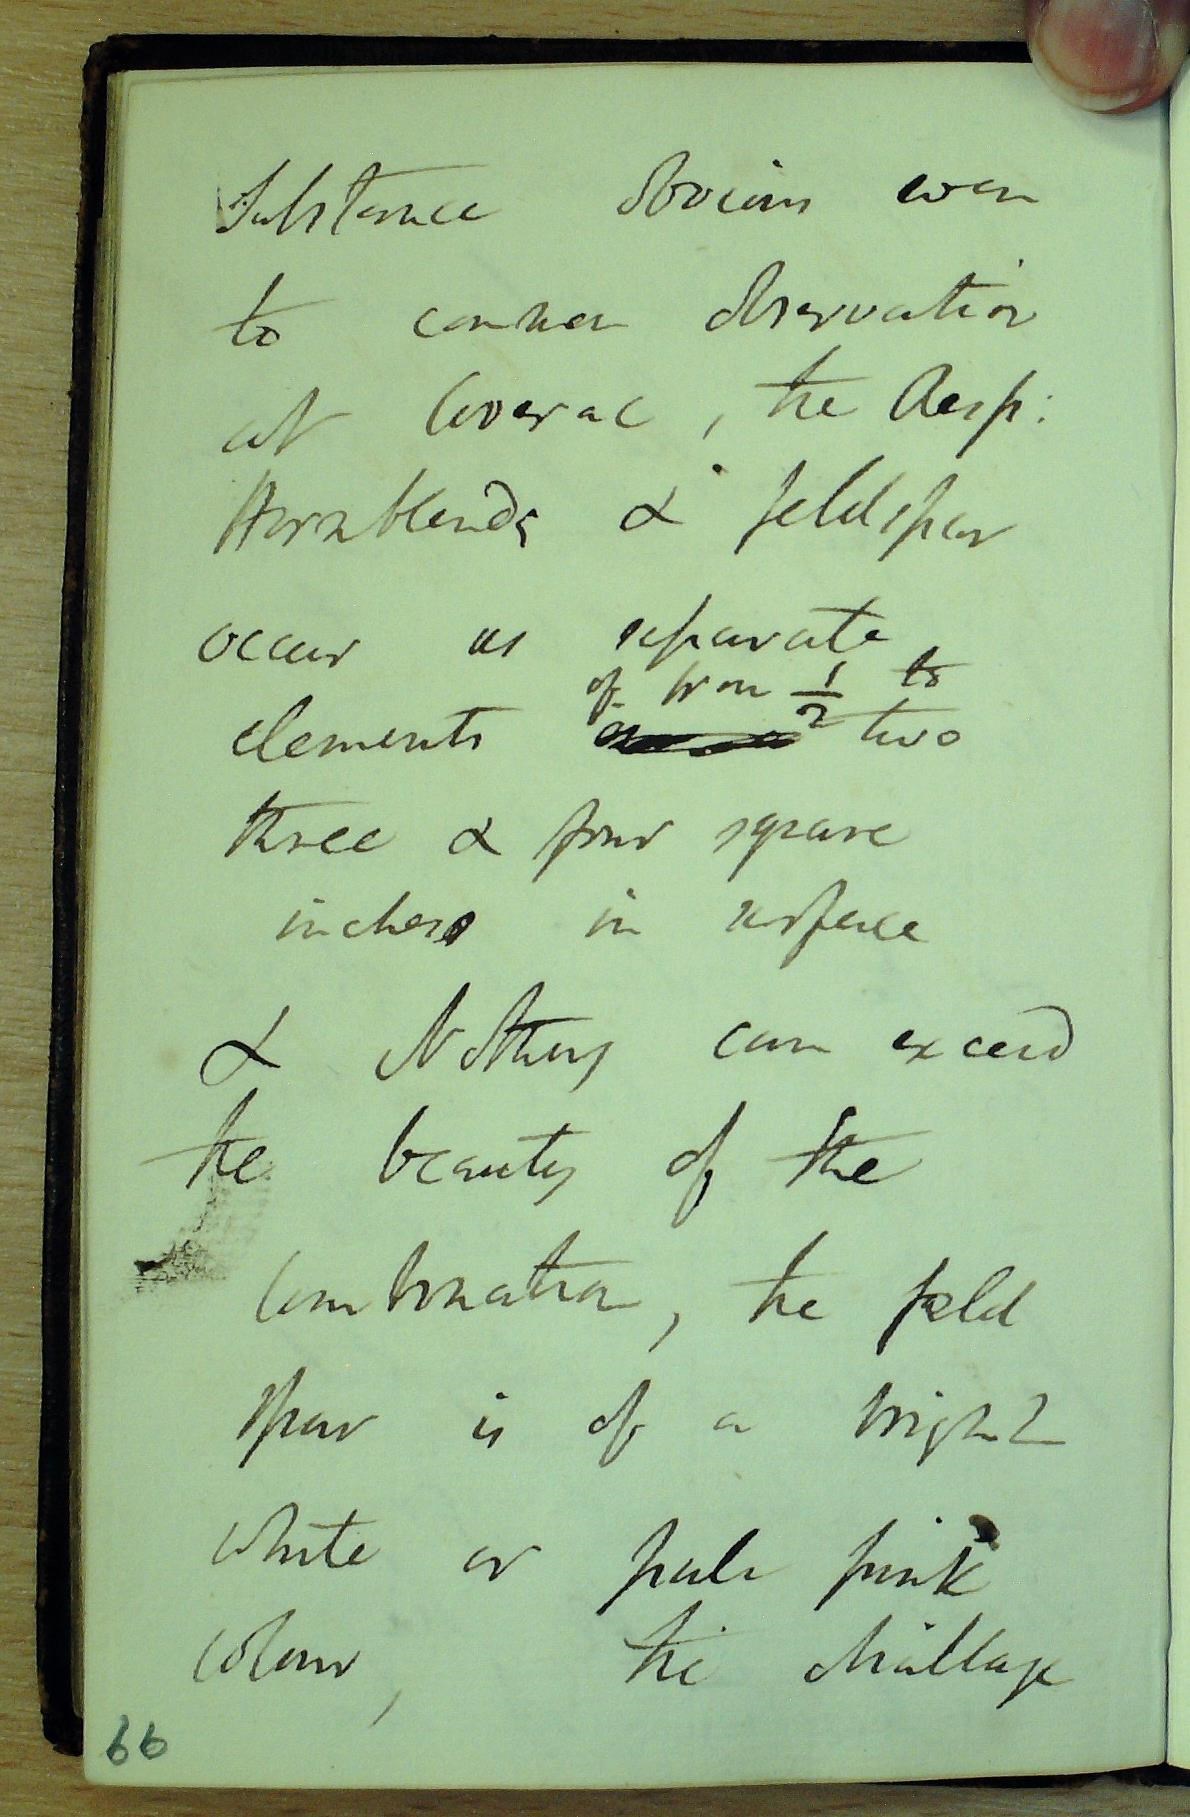 Substance obvious even
to common observation
at Coverac, the Resp:
Hornblende & feldspar
occur as separate
of from 1/2 to
elements two
three & four square
inches in surface
& Nothing can exceed
the beauty of the
Combination, the feld
spar is of a bright
white or pale pink
colour, the diallage
66